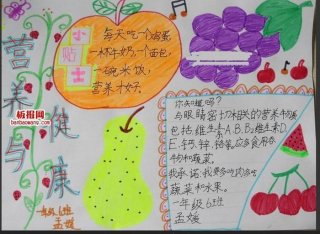 营养与健康
小贴士
每天吃一个鸡蛋
一杯牛奶,一个面包,
一碗米饭,
营养才好。
你知道吗?
与眼睛密切相关的营养物质
包括:维生素A、B、B2维生素D、
E、钙、锌、铬等,应多食用谷
物和蔬菜。
我承诺:我要多吃肉多吃
蔬菜和水果。
一年级6班
孟媛
一年级6班
孟媛
板报网
banbaowang.com